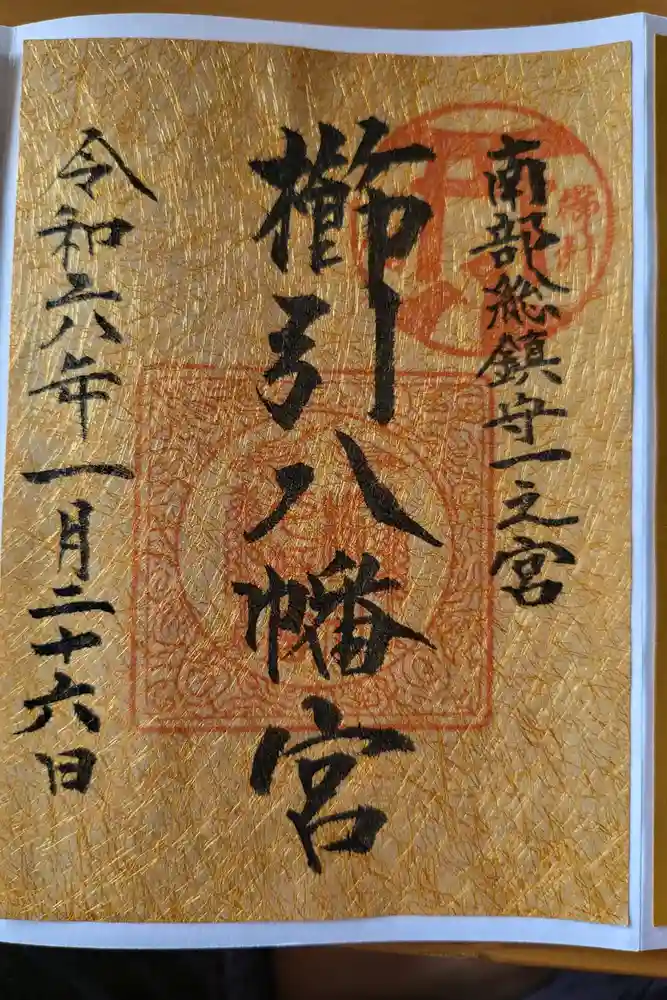 南部総鎮守一之宮
櫛引八幡宮
令和六年一月二十六日